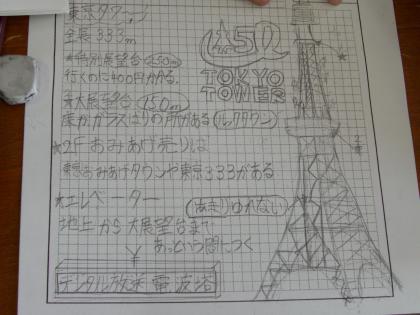 東京タワー
全長333m
★特別展望台 250m
行くのに400円かかる.
★大展望台 150m
床がガラスばりの所がある ルックダウン
★2F おみあげ売りは
東京おみあげタウンや東京333がある
★エレベーター
(あまり)ゆれない
地上から大展望台まで
あっという間につく
デジタル放送電波塔
50
TOKYO
TOWER